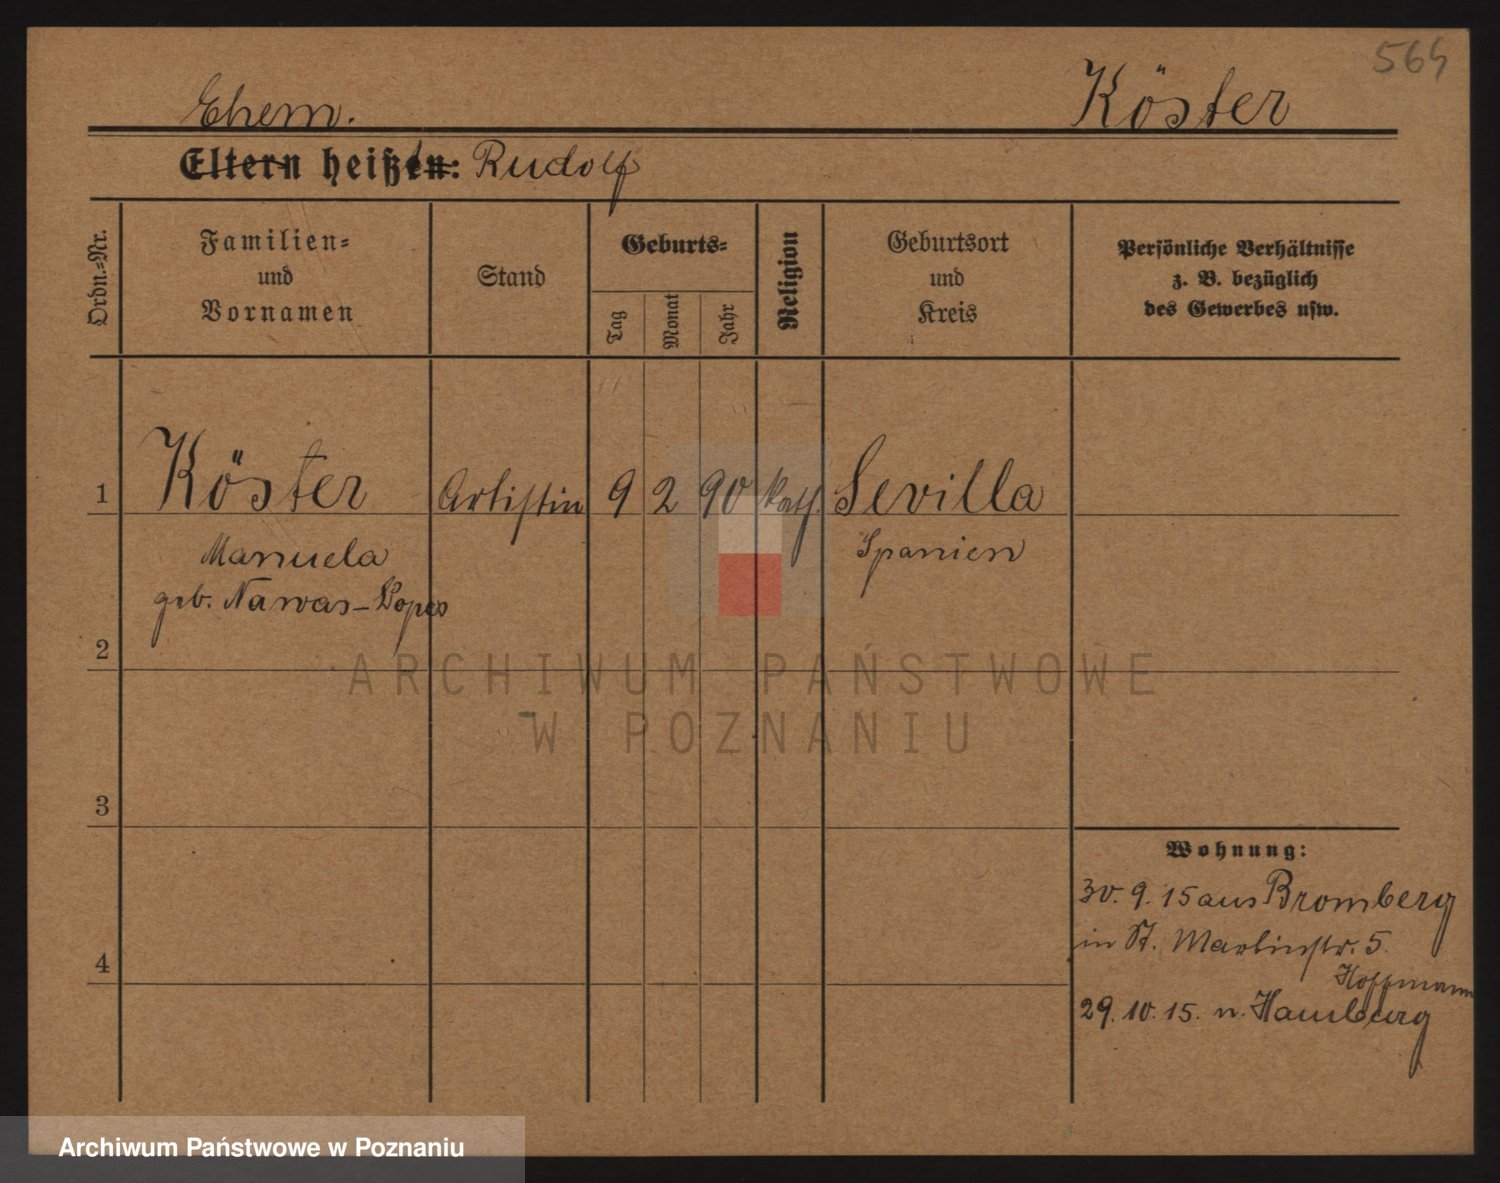 564
Ehem. Köster
Eltern heißen: Rudolf
Ordn.=Nr.
Familien=
und
Vornamen
Stand
Geburts=
Tag
Monat
Jahr
Religion
Geburtsort
und
Kreis
Persönliche Verhältnisse
z. B. bezüglich
des Gewerbes usw.
1 Köster Artistin 9 2 90 kath. Sevilla
Manuela Spanien
geb. Nawas-Lopes
2
3
4
Wohnung:
30. 9. 15 aus Bromberg
in St. Martinstr. 5.
Hoffmann
29. 10. 15. n. Hamburg
ARCHIWUM PAŃSTWOWE
W POZNANIU
Archiwum Państwowe w Poznaniu